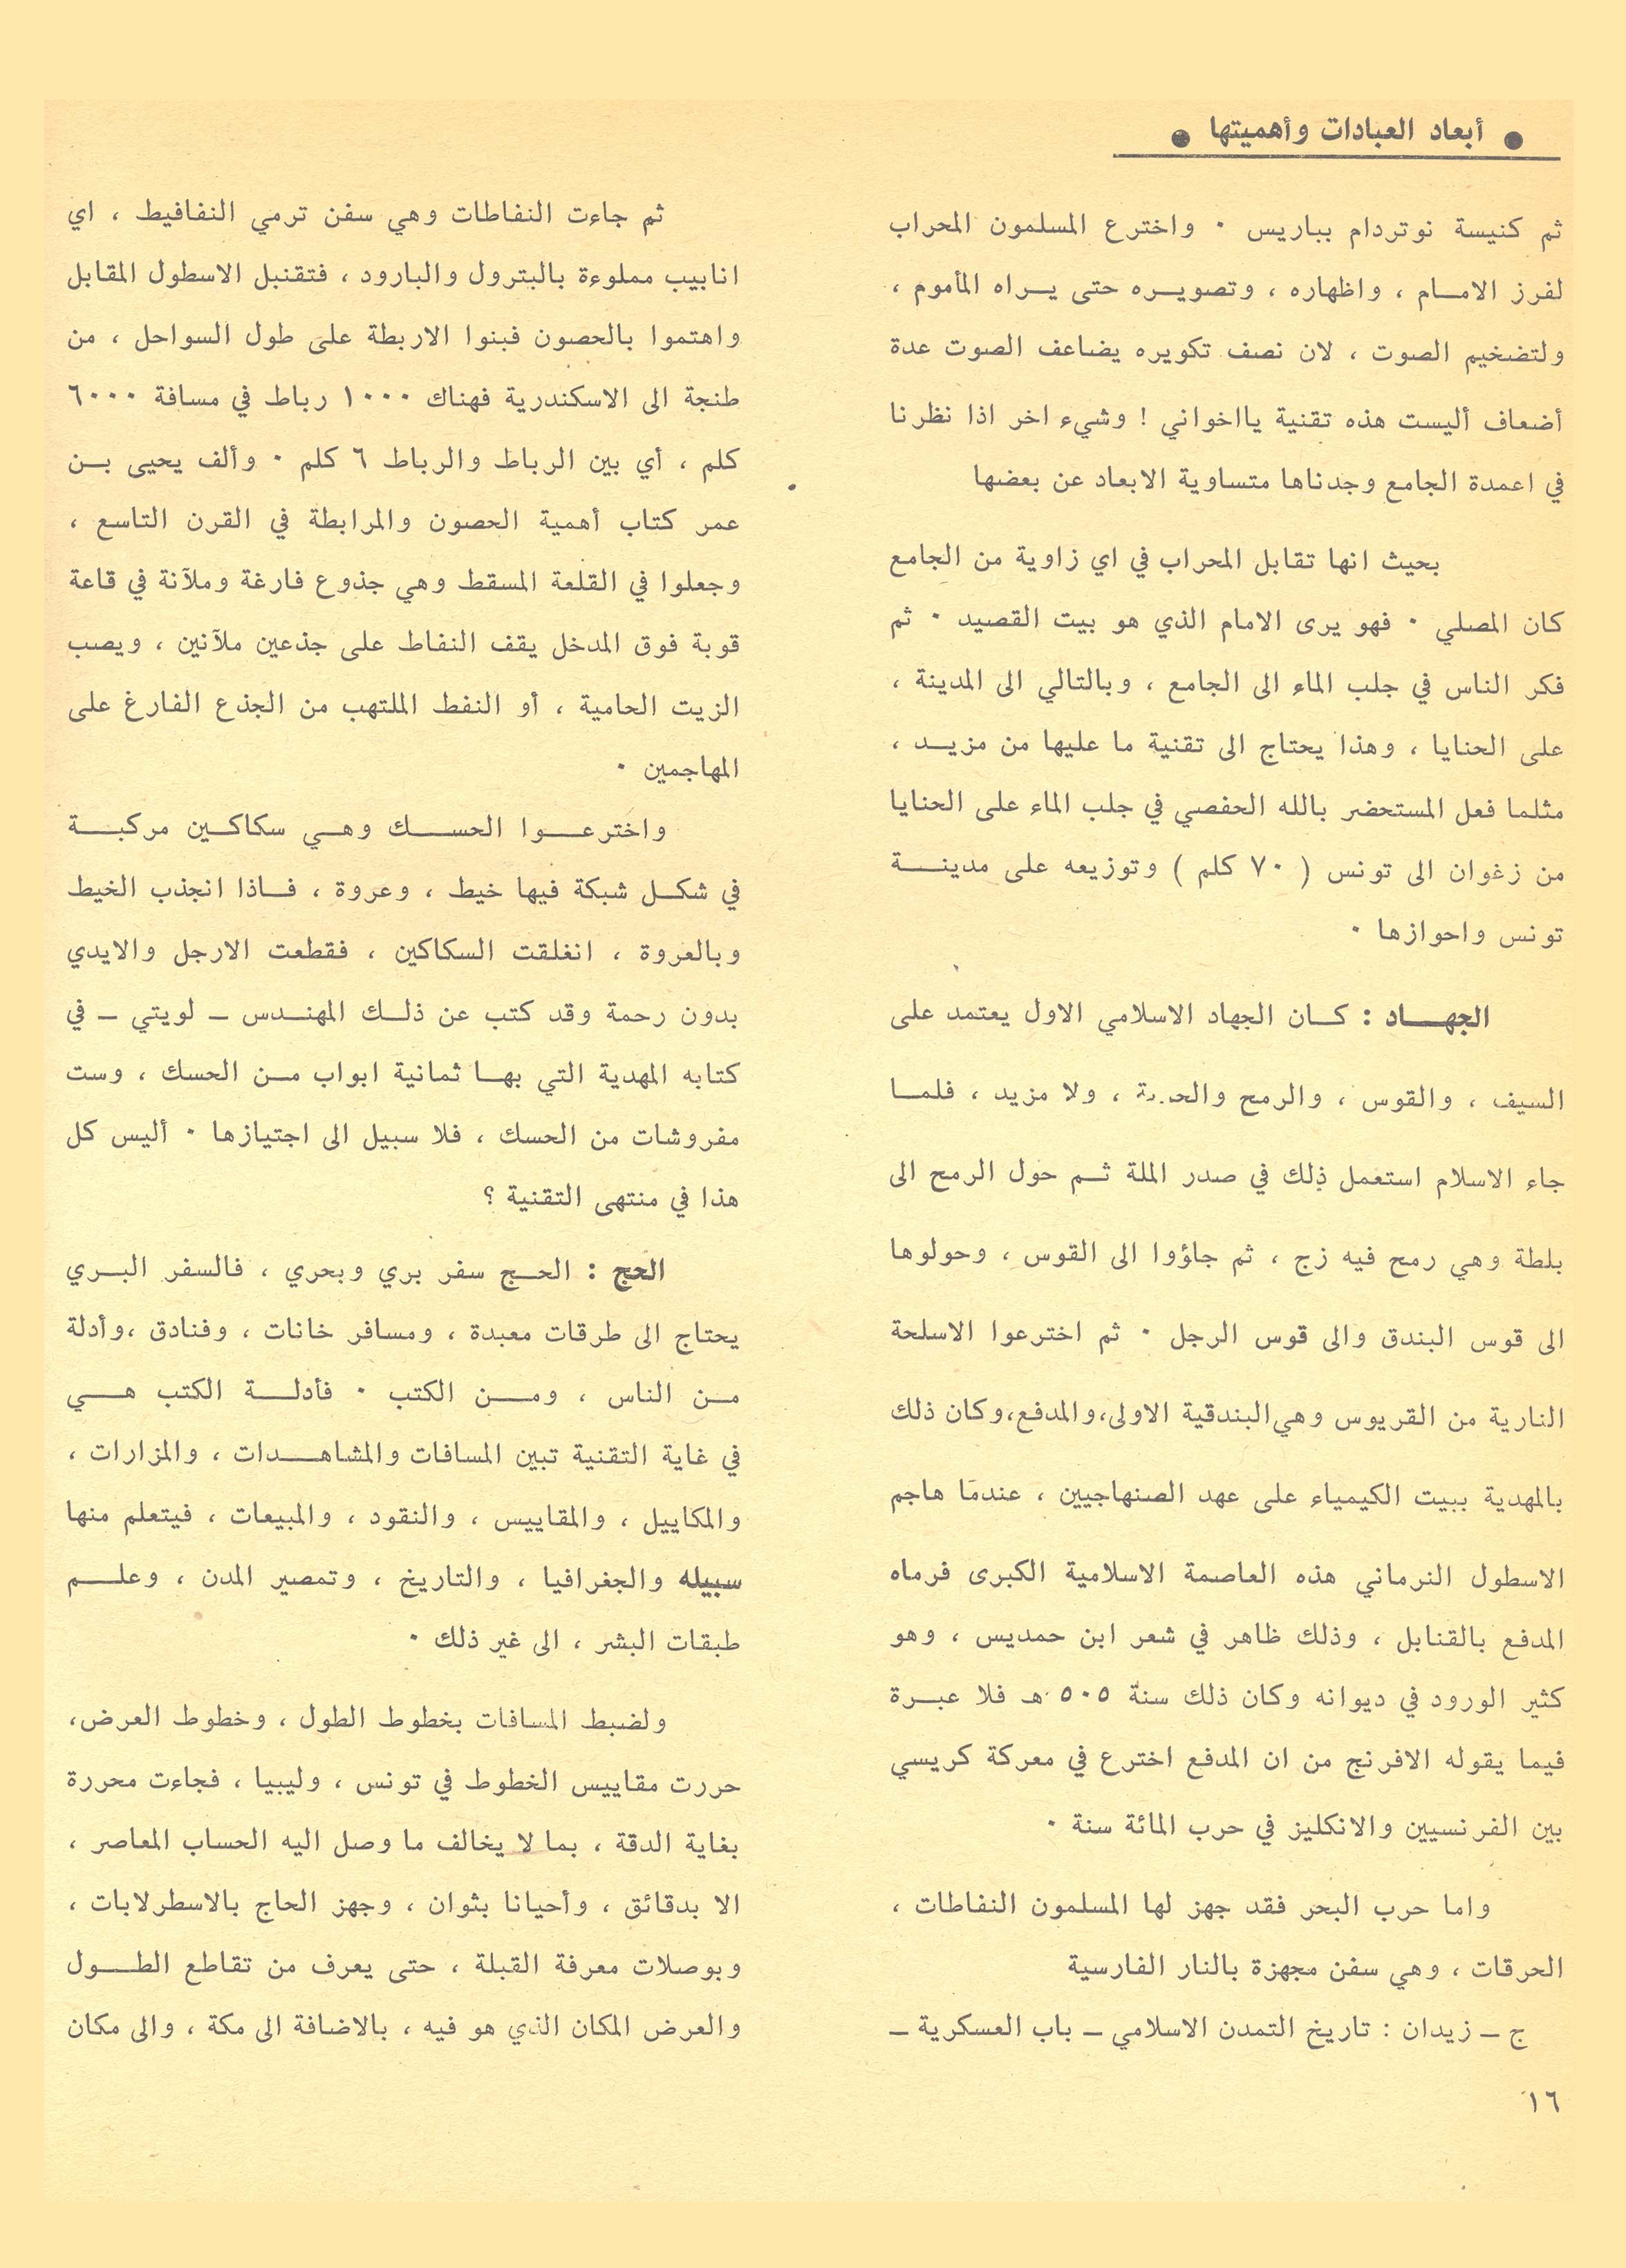 ● أبعاد العبادات وأهميتها ●
ثم كنيسة نوتردام بباريس ٠ واخترع المسلمون المحراب
لفرز الامـام ، واظهاره ، وتصويـره حتى يـراه المأموم ،
ولتضخيم الصوت ، لان نصف تكويره يضاعف الصوت عدة
أضعاف أليست هذه تقنية يااخواني ! وشيء اخر اذا نظرنا
في اعمدة الجامع وجدناها متساوية الابعاد عن بعضها
بحيث انها تقابل المحراب في اي زاوية من الجامع
كان المصلي ٠ فهو يرى الامام الذي هو بيت القصيد ٠ ثم
فكر الناس في جلب الماء الى الجامع ، وبالتالي الى المدينة ،
على الحنايا ، وهذا يحتاج الى تقنية ما عليها من مزيـد ،
مثلما فعل المستحضر بالله الحفصي في جلب الماء على الحنايا
من زغوان الى تونس ( ٧٠ كلم ) وتوزيعه على مدينـــة
تونس واحوازها ٠
الجهـــاد : كـان الجهاد الاسلامي الاول يعتمد على
السيف ، والقوس ، والرمح ، ولا مزيد ، فلمـا
جاء الاسلام استعمل ذلك في صدر الملة ثـم حول الرمح الى
بلطة وهي رمح فيه زج ، ثم جاؤوا الى القوس ، وحولوها
الى قوس البندق والى قوس الرجل ٠ ثم اخترعوا الاسلحة
النارية من القربوس وهي البندقية الاولى،والمدفع،وكان ذلك
بالمهدية ببيت الكيمياء على عهد الصنهاجيين ، عندما هاجم
الاسطول النرماني هذه العاصمة الاسلامية الكبرى فرماه
المدفع بالقنابل ، وذلك ظاهر في شعر ابن حمديس ، وهو
كثير الورود في ديوانه وكان ذلك سنة ٥٠٥ هـ فلا عبـرة
فيما يقوله الافرنج من ان المدفع اخترع في معركة كريسي
بين الفرنسيين والانكليز في حرب المائة سنة ٠
واما حرب البحر فقد جهز لها المسلمون النفاطات ،
الحرقات ، وهي سفن مجهزة بالنار الفارسية
ج ـ زيدان : تاريخ التمدن الاسلامي ـ باب العسكرية ـ
١٦
ثم جاءت النفاطات وهي سفن ترمي النفافيط ، اي
انابيب مملوءة بالبترول والبارود ، فتقنبل الاسطول المقابل
واهتموا بالحصون فبنوا الاربطة على طول السواحل ، من
طنجة الى الاسكندرية فهناك ١٠٠٠ رباط في مسافة ٦٠٠٠
كلم ، أي بين الرباط والرباط ٦ كلم ٠ وألف يحيى بـن
عمر كتاب أهمية الحصون والمرابطة في القرن التاسع ،
وجعلوا في القلعة المسقط وهي جذوع فارغة وملآنة في قاعة
قوبة فوق المدخل يقف النفاط على جذعين ملآنين ، ويصب
الزيت الحامية ، أو النفط الملتهب من الجذع الفارغ على
المهاجمين ٠
واخترعـــوا الحســـك وهـــي سكاكـــين مركبـــة
في شكـل شبكة فيها خيط ، وعروة ، فـاذا انجذب الخيط
وبالعروة ، انغلقت السكاكين ، فقطعت الارجل والايدي
بدون رحمة وقد كتب عن ذلـك المهنـدس ـ لويتي ـ في
كتابه المهدية التي بهـا ثمانية ابواب مـن الحسك ، وست
مفروشات من الحسك ، فلا سبيل الى اجتيازها ٠ أليس كل
هذا في منتهى التقنية ؟
الحج : الحـج سفر بري وبحري ، فالسفر البـري
يحتاج الى طرقات معبدة ، ومسافر خانات ، وفنادق ،وأدلة
مـن الناس ، ومـن الكتب ٠ فأدلـة الكتب هـي
في غاية التقنية تبين المسافات والمشاهــدات ، والمزارات ،
والمكاييل ، والمقاييس ، والنقود ، والمبيعات ، فيتعلم منها
سبيله والجغرافيا ، والتاريخ ، وتمصير المدن ، وعلـــم
طبقات البشر ، الى غير ذلك ٠
ولضبط المسافات بخطوط الطول ، وخطوط العرض،
حررت مقاييس الخطوط في تونس ، وليبيا ، فجاءت محررة
بغاية الدقة ، بما لا يخالف ما وصل اليه الحساب المعاصر ،
الا بدقائق ، وأحيانا بثوان ، وجهز الحاج بالاسطرلابات ،
وبوصلات معرفة القبلة ، حتى يعرف من تقاطع الطـــول
والعرض المكان الذي هو فيه ، بالاضافة الى مكة ، والى مكان